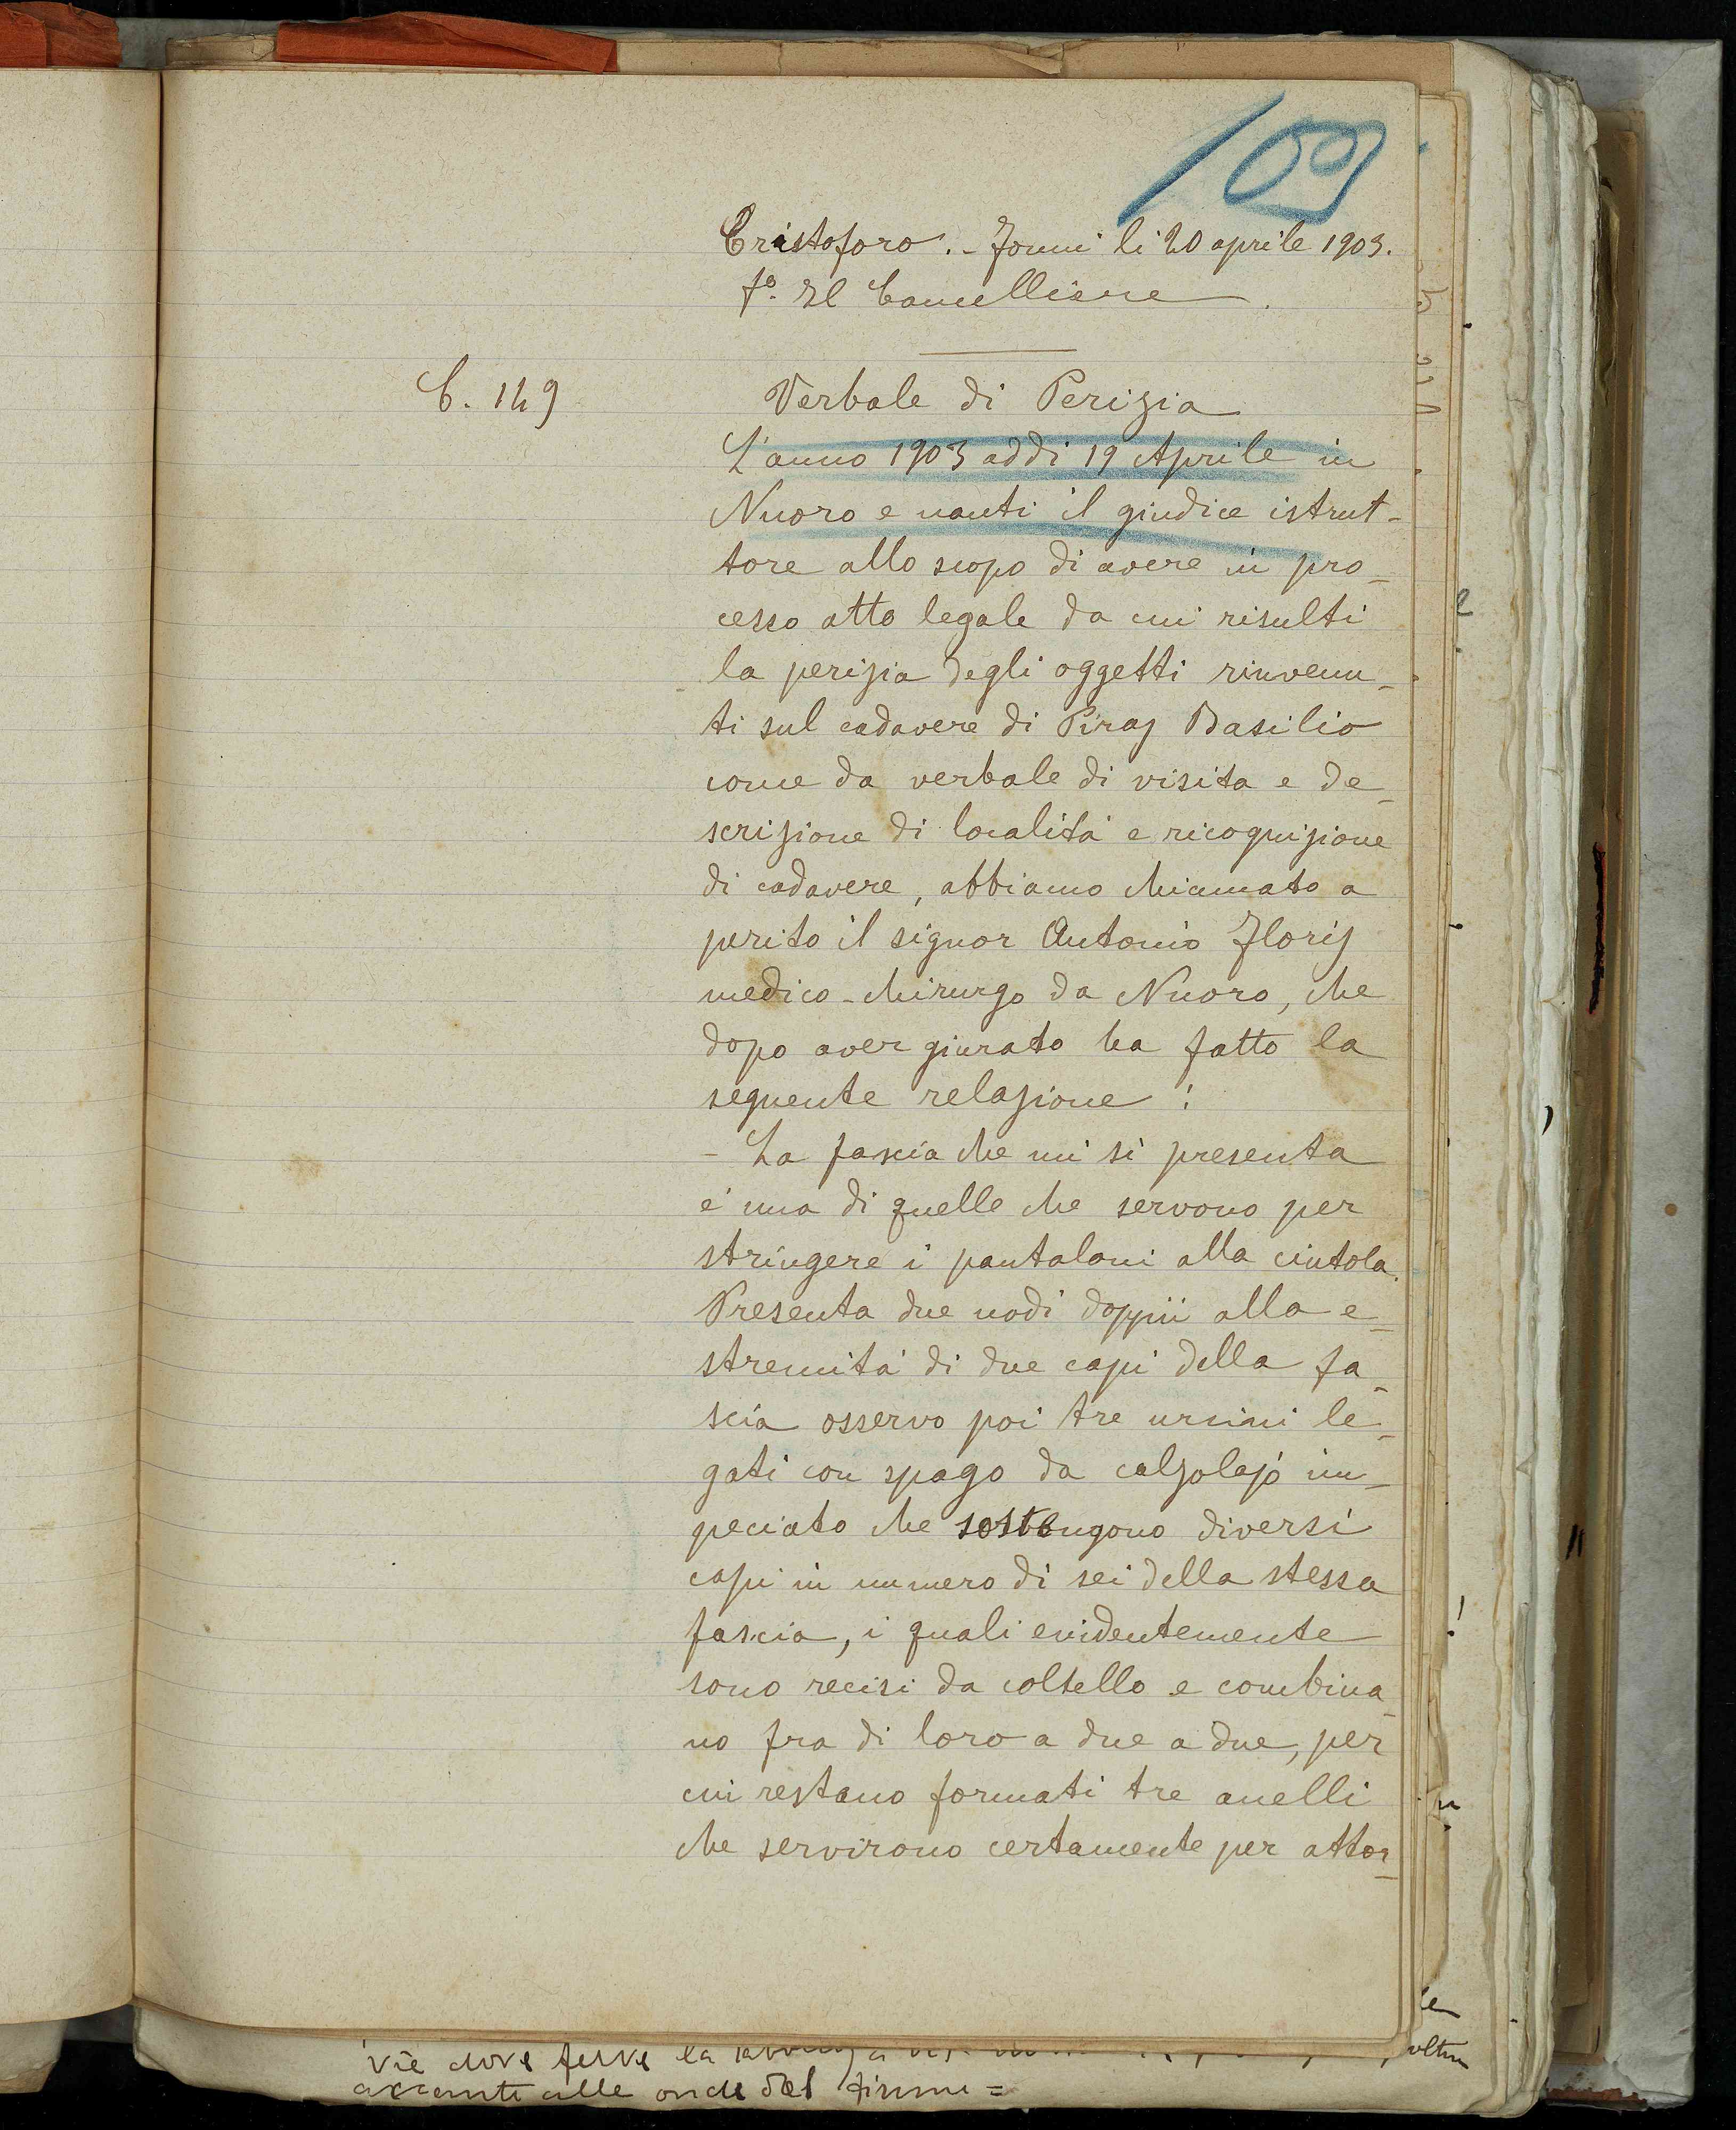 109
Cristoforo. - Fonni li 20 aprile 1903.
fo. Il Cancelliere
C. 149
Verbale di Perizia
L'anno 1903 addì 19 Aprile in
Nuoro e nanti il giudice istrut-
tore allo scopo di avere in pro-
cesso atto legale da cui risulti
la perizia degli oggetti rinvenu-
ti sul cadavere di Piras Basilio
come da verbale di visita e de-
scrizione di località e ricognizione
di cadavere, abbiamo chiamato a
perito il signor Antonio Floris
medico-chirurgo da Nuoro, che
dopo aver giurato ha fatto la
seguente relazione:
- La fascia che mi si presenta
è una di quelle che servono per
stringere i pantaloni alla cintola.
Presenta due nodi doppii alla e-
stremità di due capi della fa-
scia osservo poi tre uncini le-
gati con spago da calzolajo im-
peciato che sostengono diversi
capi in numero di sei della stessa
fascia, i quali evidentemente
sono recisi da coltello e combina-
no fra di loro a due a due, per
cui restano formati tre anelli
che servirono certamente per attor-
vie dove ferve la
alle onde del fiume =